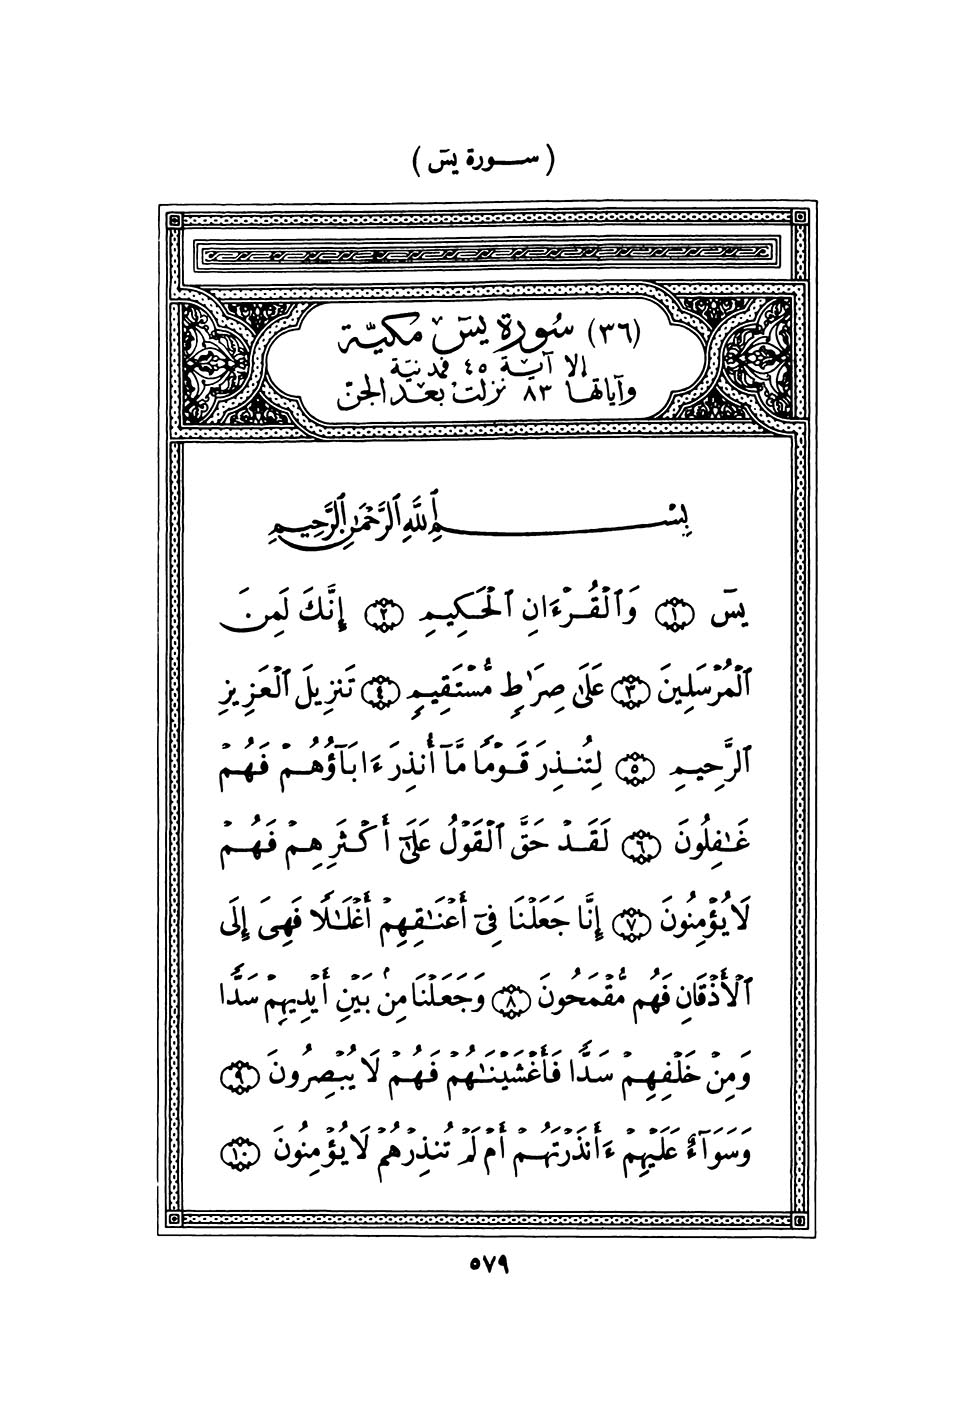 ( ســورة يسٓ )
(٣٦) سُورة يسٓ مكيّة
إلا آية ٤٥ فمدنية
وآياتها ٨٣ نزلت بعد الجن
بِسْمِ ٱللَّهِ ٱلرَّحْمَٰنِ ٱلرَّحِيمِ
يسٓ ۝١ وَٱلْقُرْءَانِ ٱلْحَكِيمِ ۝٢ إِنَّكَ لَمِنَ
ٱلْمُرْسَلِينَ ۝٣ عَلَىٰ صِرَٰطٍ مُّسْتَقِيمٍ ۝٤ تَنزِيلَ ٱلْعَزِيزِ
ٱلرَّحِيمِ ۝٥ لِتُنذِرَ قَوْمًا مَّآ أُنذِرَ ءَابَآؤُهُمْ فَهُمْ
غَٰفِلُونَ ۝٦ لَقَدْ حَقَّ ٱلْقَوْلُ عَلَىٰٓ أَكْثَرِهِمْ فَهُمْ
لَا يُؤْمِنُونَ ۝٧ إِنَّا جَعَلْنَا فِىٓ أَعْنَٰقِهِمْ أَغْلَٰلًا فَهِىَ إِلَى
ٱلْأَذْقَانِ فَهُم مُّقْمَحُونَ ۝٨ وَجَعَلْنَا مِنۢ بَيْنِ أَيْدِيهِمْ سَدًّا
وَمِنْ خَلْفِهِمْ سَدًّا فَأَغْشَيْنَٰهُمْ فَهُمْ لَا يُبْصِرُونَ ۝٩
وَسَوَآءٌ عَلَيْهِمْ ءَأَنذَرْتَهُمْ أَمْ لَمْ تُنذِرْهُمْ لَا يُؤْمِنُونَ ۝١٠
٥٧٩